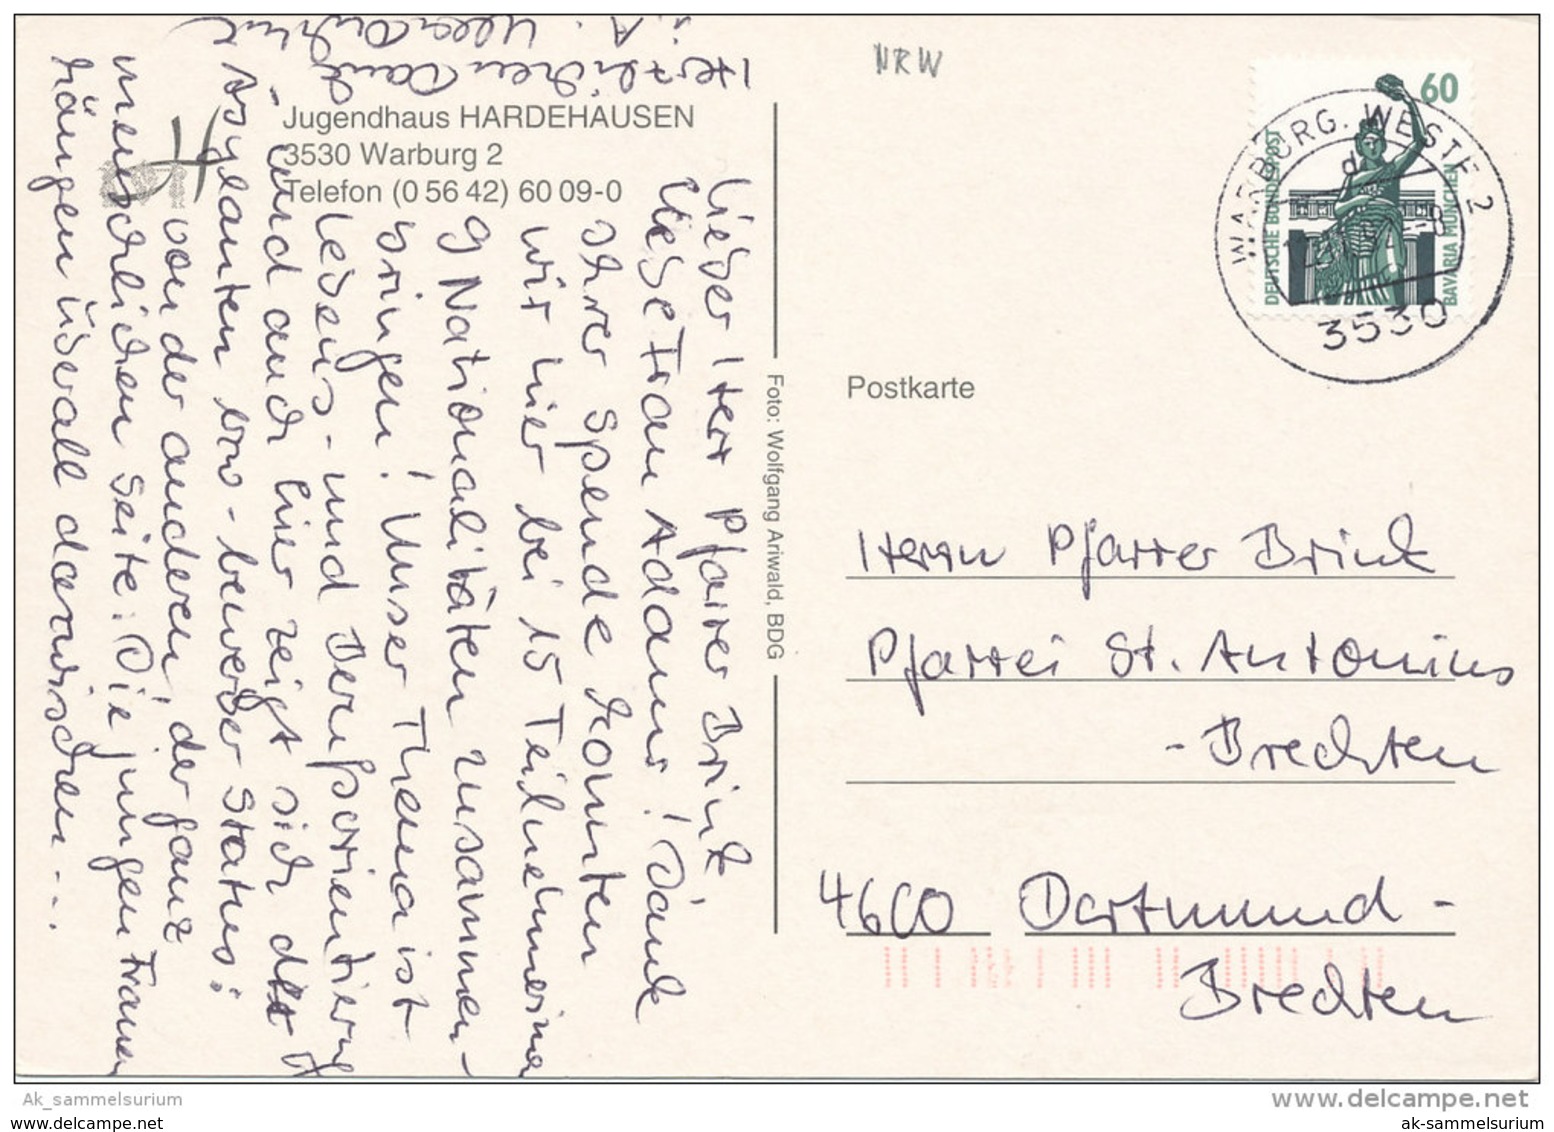 NRW
Jugendhaus HARDEHAUSEN
3530 Warburg 2
Telefon (0 56 42) 60 09-0
Lieber Herr Pfarrer Brink
Liebe Frau Adams! Dank
Ihrer Spende konnten
wir hier bei 15 Teilnehmerinnen
9 Nationalitäten zusammen-
bringen! Unser Thema ist
Lebens- und Berufsorientierung
und auch hier zeigt sich der
Asylanten bzw - bewerber Status:
von der anderen, der ganz
menschlichen Seite: Die jungen Frauen
hängen überall dazwischen...
Herzlichen Dank
i.A.
Foto: Wolfgang Ariwald, BDG
60
DEUTSCHE BUNDESPOST
BAVARIA MÜNCHEN
WARBURG, WESTF 2
d
-8
3530
Postkarte
Herrn Pfarrer Brink
Pfarrei St. Antonius
- Brechten
4600 Dortmund -
Brechten
Ak_sammelsurium
www.delcampe.net
ak-sammelsurium
ak-sammelsurium